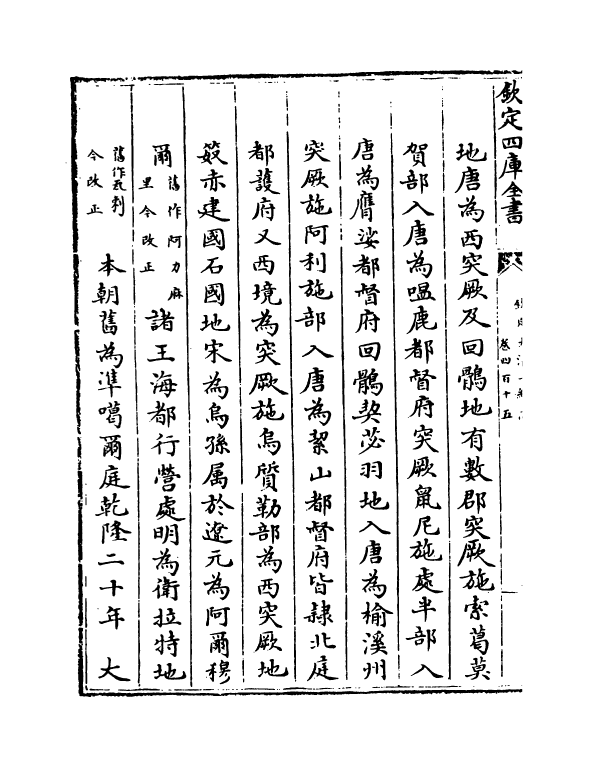 欽定四庫全書
卷四百十五
地唐為西突厥及回鶻地有數郡突厥施索葛莫
賀部入唐為嗢鹿都督府突厥鼠尼施處半部入
唐為鷹娑都督府回鶻契苾羽地入唐為榆溪州
突厥施阿利施部入唐為絜山都督府皆隸北庭
都護府又西境為突厥施烏質勒部為西突厥地
筱赤建國石國地宋為烏孫属於遼元為阿爾穆
爾舊作阿力麻里今改正諸王海都行營處明為衛拉特地
舊作瓦剌今改正本朝舊為準噶爾庭乾隆二十年大